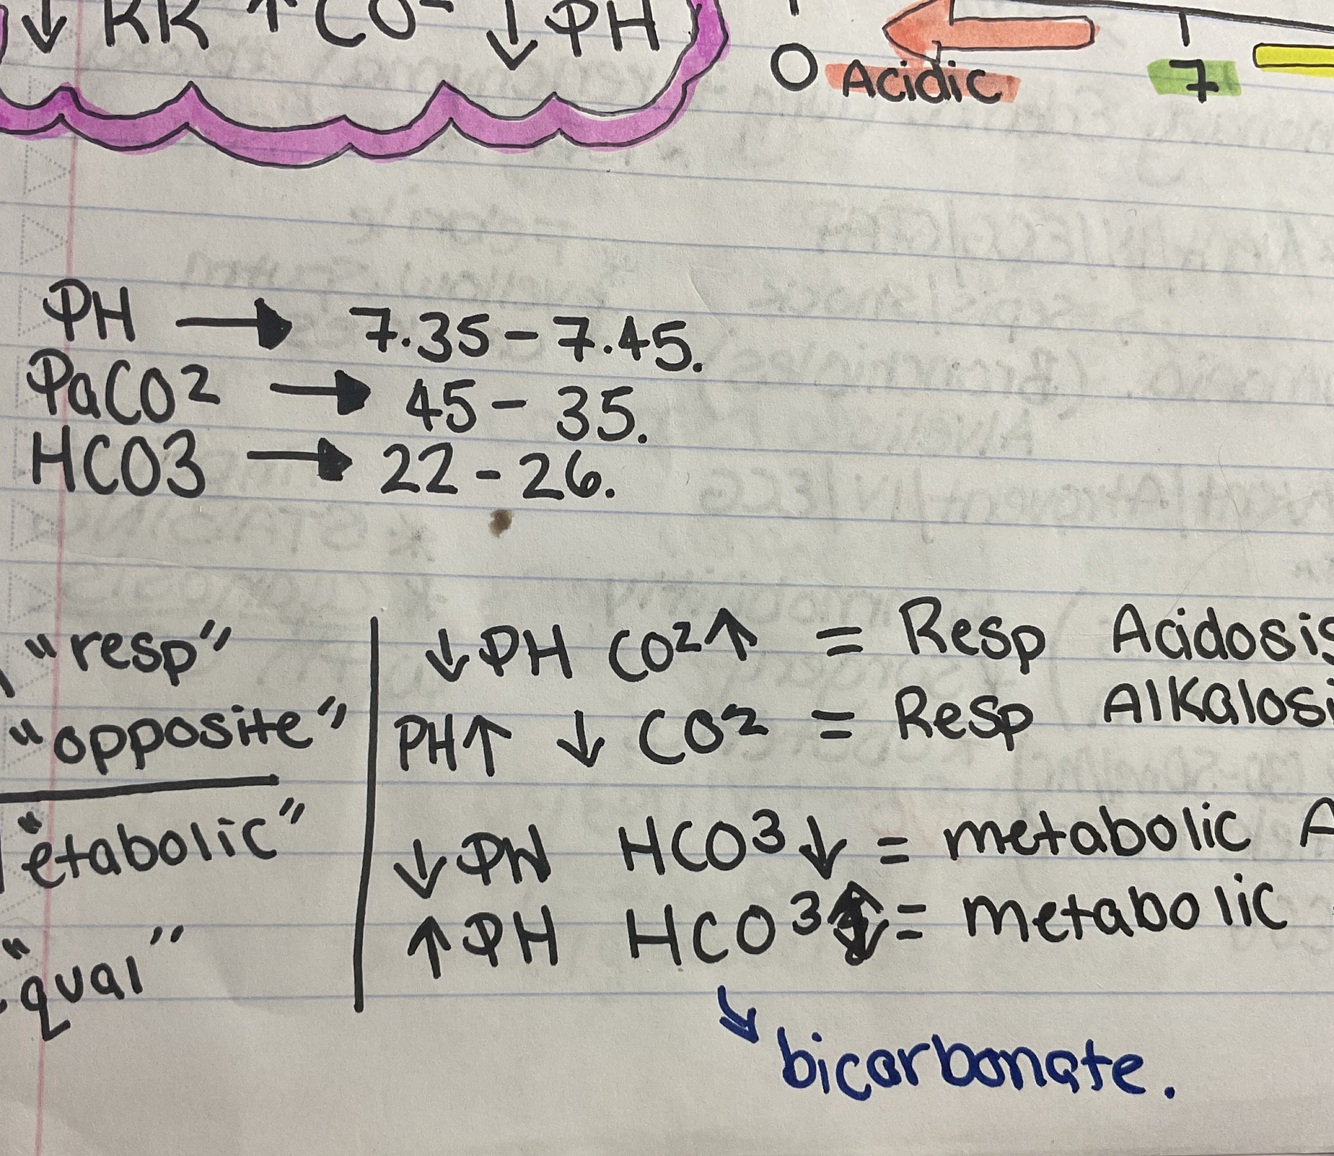 ↓ RR ↑ CO² ↓ PH
0 Acidic 7
PH → 7.35 - 7.45.
PaCO2 → 45 - 35.
HCO3 → 22 - 26.
"resp"
"opposite"
"etabolic"
"qual"
↓ PH CO2↑ = Resp Acidosis
PH↑ ↓ CO2 = Resp Alkalosi
↓ PH HCO3↓ = metabolic A
↑ PH HCO3↑ = metabolic
↘ bicarbonate.